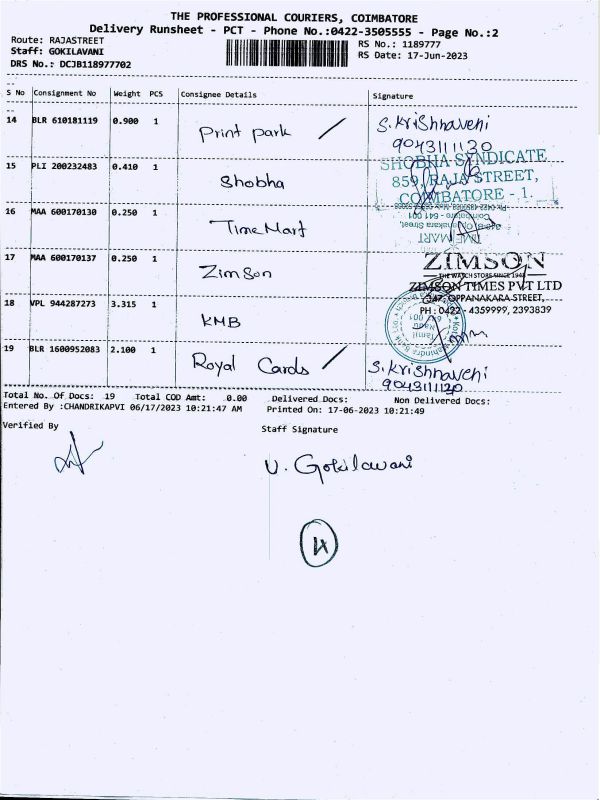 THE PROFESSIONAL COURIERS, COIMBATORE
Delivery Runsheet - PCT - Phone No.:0422-3505555 - Page No.:2
Route: RAJASTREET
Staff: GOKILAVANI
DRS No.: DCJB118977702
RS No.: 1189777
RS Date: 17-Jun-2023
S No Consignment No Weight PCS Consignee Details Signature
14 BLR 610181119 0.900 1 Print park S. Krishnaveni
9043111120
15 PLI 200232483 0.410 1 Shobha
SHOBHA SYNDICATE
859, RAJA STREET,
COIMBATORE - 1.
16 MAA 600170130 0.250 1 Time Mart
TIME MART
Coimbatore - 641 001
17 MAA 600170137 0.250 1 Zimson
ZIMSON
THE WATCH STORE SINCE 1948
ZIMSON TIMES PVT LTD
347, OPPANAKARA STREET,
PH : 0422 - 4359999, 2393839
18 VPL 944287273 3.315 1 KMB
19 BLR 1600952083 2.100 1 Royal Cards S. Krishnaveni
9043111120
Total No. Of Docs: 19 Total COD Amt: 0.00 Delivered Docs: Non Delivered Docs:
Entered By :CHANDRIKAPVI 06/17/2023 10:21:47 AM Printed On: 17-06-2023 10:21:49
Verified By Staff Signature
V. Gokilavani